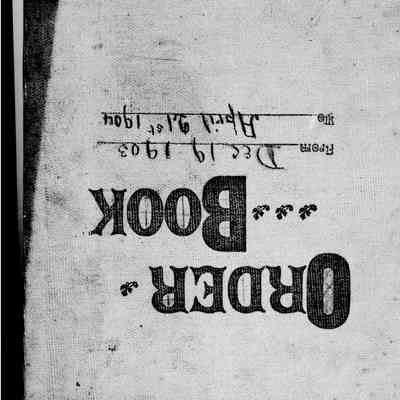 ORDER
BOOK
From Dec 19 1903
To April 21st 1904